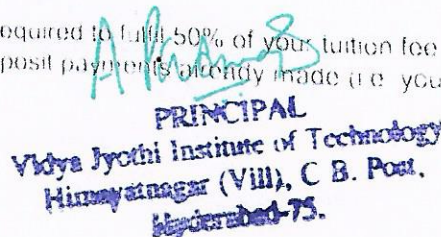 equired to fulfil 50% of your tuition fee
posit payments already made (i.e. you
PRINCIPAL
Vidya Jyothi Institute of Technology
Himayatnagar (Vill), C. B. Post,
Hyderabad-75.